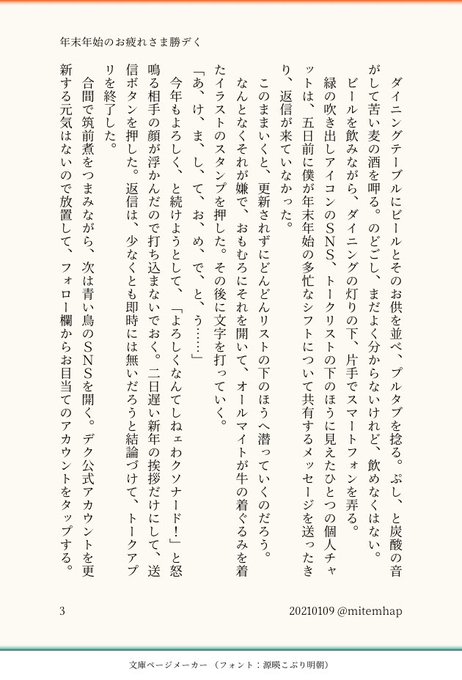 年末年始のお疲れさま勝デく
　ダイニングテーブルにビールとそのお供を並べ、プルタブを捻る。ぷし、と炭酸の音
がして苦い麦の酒を呷る。のどごし、まだよく分からないけれど、飲めなくはない。
　ビールを飲みながら、ダイニングの灯りの下、片手でスマートフォンを弄る。
　緑の吹き出しアイコンのＳＮＳ、トークリストの下のほうに見えたひとつの個人チャ
ットは、五日前に僕が年末年始の多忙なシフトについて共有するメッセージを送ったき
り、返信が来ていなかった。
　このままいくと、更新されずにどんどんリストの下のほうへ潜っていくのだろう。
　なんとなくそれが嫌で、おもむろにそれを開いて、オールマイトが牛の着ぐるみを着
たイラストのスタンプを押した。その後に文字を打っていく。
「あ、け、ま、し、て、お、め、で、と、う……」
　今年もよろしく、と続けようとして、「よろしくなんてしねェわクソナード！」と怒
鳴る相手の顔が浮かんだので打ち込まないでおく。二日遅い新年の挨拶だけにして、送
信ボタンを押した。返信は、少なくとも即時には無いだろうと結論づけて、トークアプ
リを終了した。
　合間で筑前煮をつまみながら、次は青い鳥のＳＮＳを開く。デク公式アカウントを更
新する元気はないので放置して、フォロー欄からお目当てのアカウントをタップする。
3
20210109 @mitemhap
文庫ページメーカー（フォント：源暎こぶり明朝）